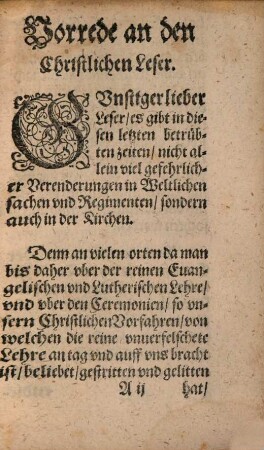 Vorrede an den
Christlichen Leser.
GVnstiger lieber
Leser/ es gibt in die-
sen letzten betrüb-
ten zeiten/ nicht al-
lein viel gefehrlich-
er Verenderungen in Weltlichen
sachen vnd Regimenten/ sondern
auch in der Kirchen.
Denn an vielen orten da man
bis daher vber der reinen Euan-
gelischen vnd Lutherischen Lehre/
vnd vber den Ceremonien/ so vn-
sern Christlichen Vorfahren/ von
welchen die reine vnuerfelschete
Lehre an tag vnd auff vns bracht
ist/ beliebet/ gestritten vnd gelitten
A ij hat/